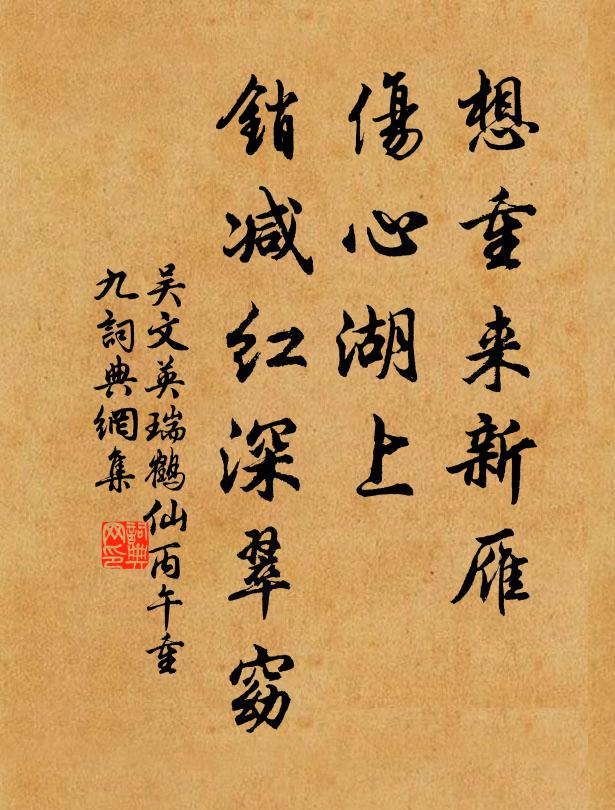 想重来新雁
傷心湖上
銷减红深翠窈
吴文英瑞鶴仙丙午重
九詞典網集
詞典网印